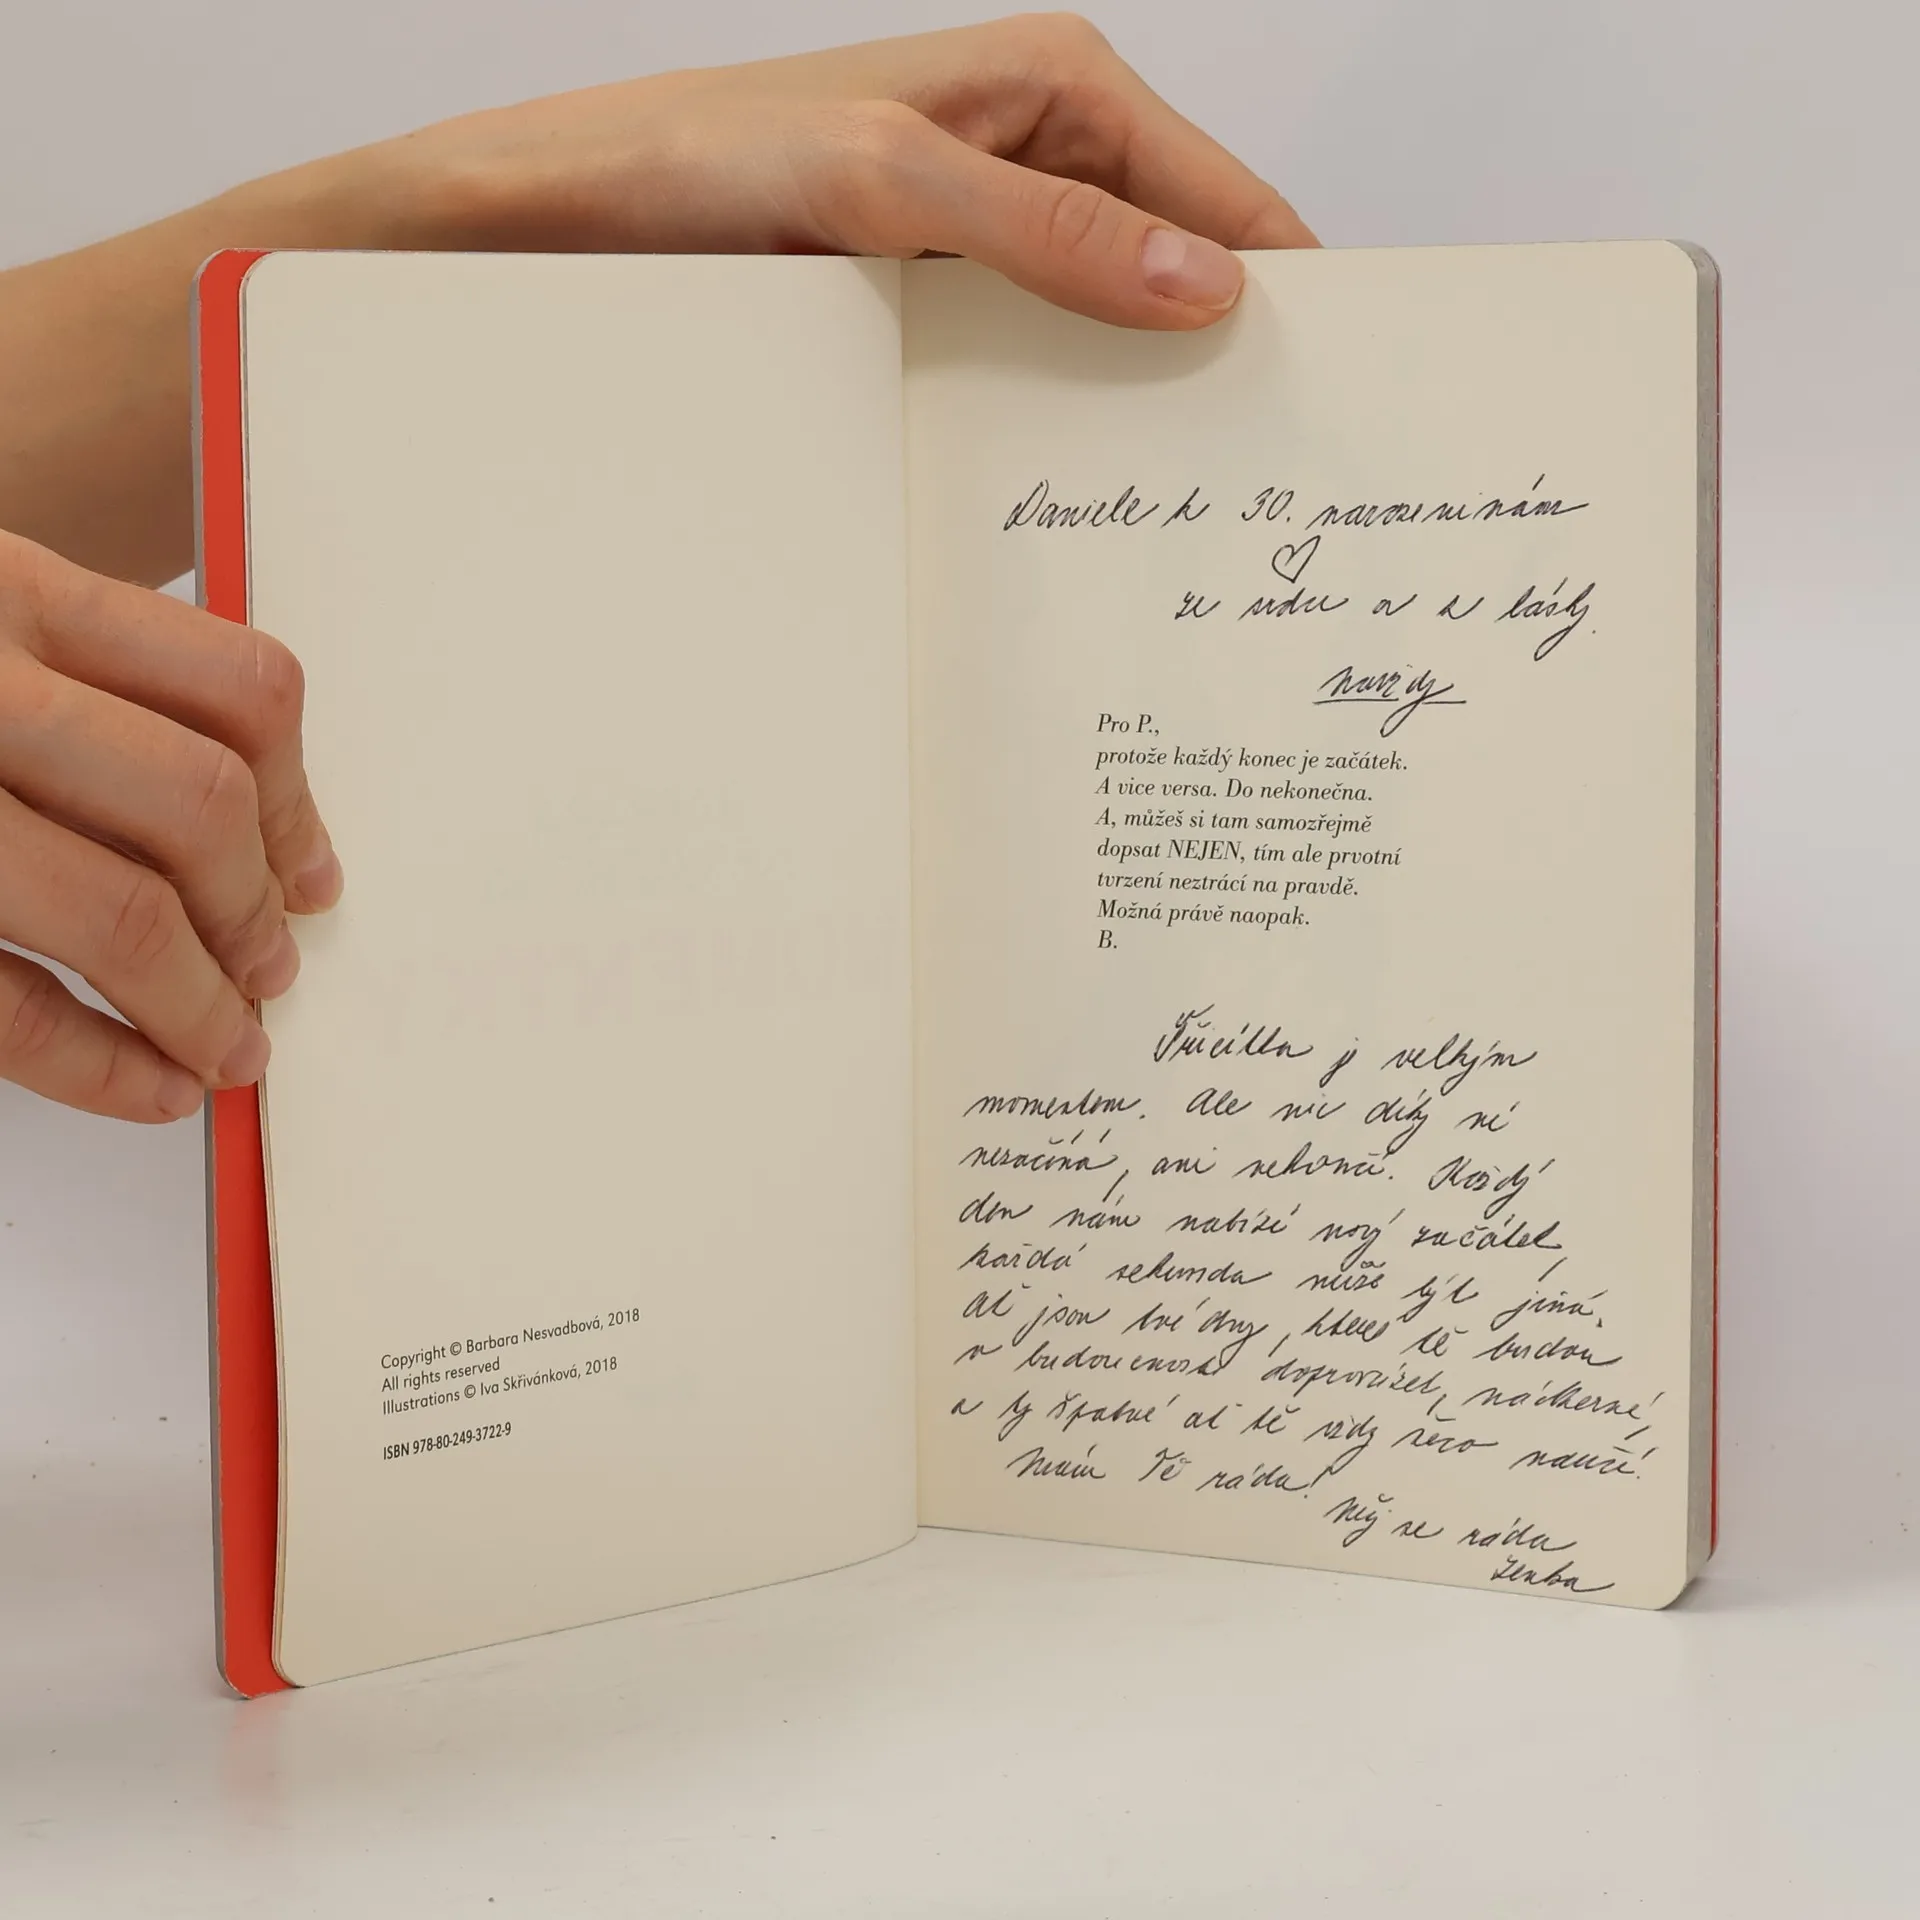 Copyright © Barbara Nesvadbová, 2018
All rights reserved
Illustrations © Iva Skřivánková, 2018
ISBN 978-80-249-3722-9
Daniele k 30. narozeninám
ze srdce a s lásky
navždy
Pro P.,
protože každý konec je začátek.
A vice versa. Do nekonečna.
A, můžeš si tam samozřejmě
dopsat NEJEN, tím ale prvotní
tvrzení neztrácí na pravdě.
Možná právě naopak.
B.
Třicítka je velkým
momentem. Ale nic díky ní
nezačíná, ani nekončí. Každý
den nám nabízí nový začátek,
každá sekunda může být jiná.
Ať jsou tvé dny, které tě budou
v budoucnosti doprovázet, nádherné,
a ty špatné ať tě vždy něco naučí.
Mám Tě ráda!
Měj se ráda
Lenka